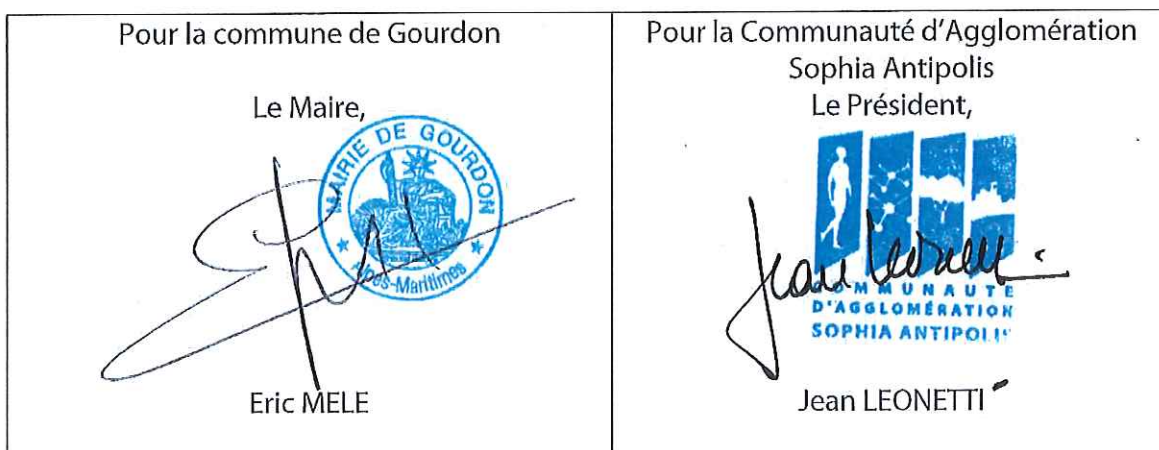 Pour la commune de Gourdon
Le Maire,
MAIRIE DE GOURDON
Alpes-Maritimes
Eric MELE
Pour la Communauté d'Agglomération
Sophia Antipolis
Le Président,
Jean Leonetti
COMMUNAUTE
D'AGGLOMÉRATION
SOPHIA ANTIPOLIS
Jean LEONETTI